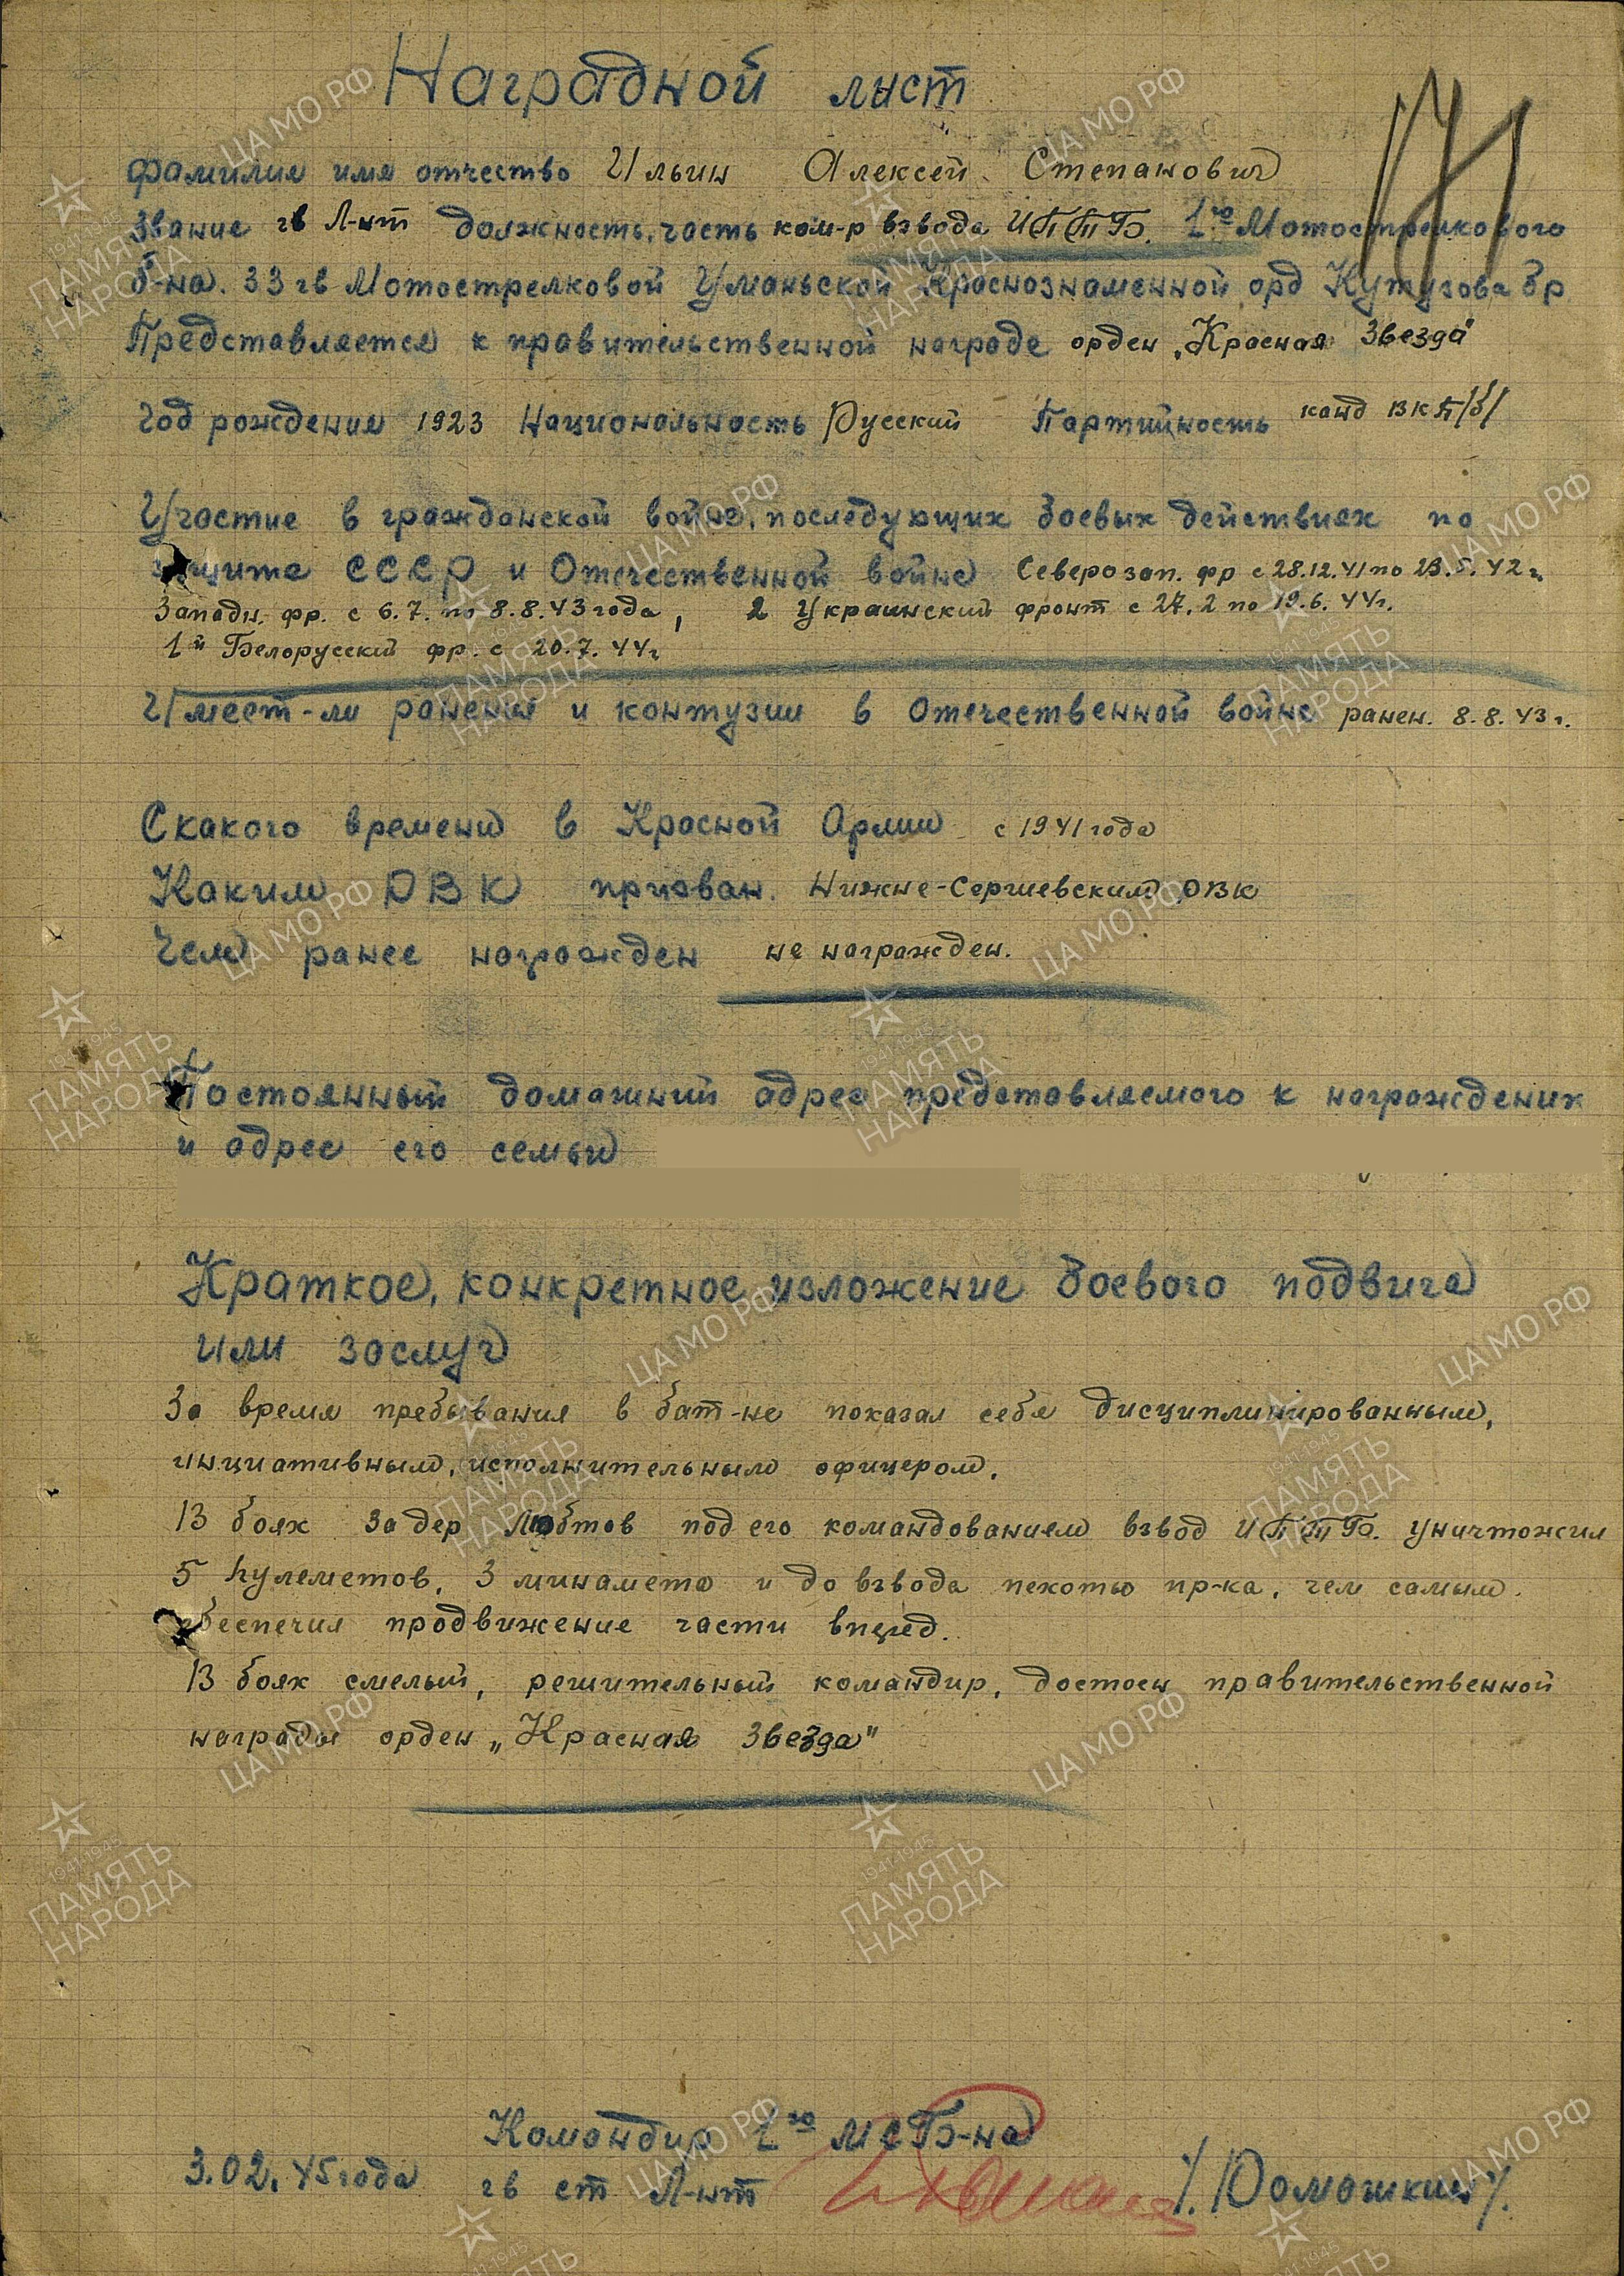 Наградной лист
Фамилия имя отчество Ильин Алексей Степанович
Звание гв Л-нт должность, часть ком-р взвода 1го Мотострелкового
б-на. 33 гв Мотострелковой Уманьской Краснознаменной орд Кутузова бр
Представляется к правительственной награде орден „Красная Звезда"
Год рождения 1923 Национальность Русский Партийность канд ВКП/б/
Участие в гражданской войне, последующих боевых действиях по
защите СССР и Отечественной войне Северозап. фр с 28.12.41 по 23.5.42г.
Западн. фр. с 6.7. по 8.8.43 года, 2 Украинский фронт с 27.2 по 19.6.44г.
1й Белорусский фр. с 20.7.44г.
Имеет-ли ранения и контузии в Отечественной войне ранен. 8.8.43г.
С какого времени в Красной Армии с 1941 года
Каким РВК призван. Нижне-Сергиевским РВК
Чем ранее награжден не награжден.
Постоянный домашний адрес представляемого к награждению
и адрес его семьи
Краткое, конкретное изложение боевого подвига
или заслуг
За время пребывания в бат-не показал себя дисциплинированным,
инициативным, исполнительным офицером.
В боях за дер Любтов под его командованием взвод уничтожил
5 пулеметов, 3 миномета и до взвода пехоты пр-ка, чем самым
обеспечил продвижение части вперед.
В боях смелый, решительный командир, достоен правительственной
награды орден „Красная Звезда"
Командир 1го МСБ-на
3.02.45 года гв ст Л-нт /Ромашкин/.
ЦА МО РФ
1941-1945
ПАМЯТЬ
НАРОДА